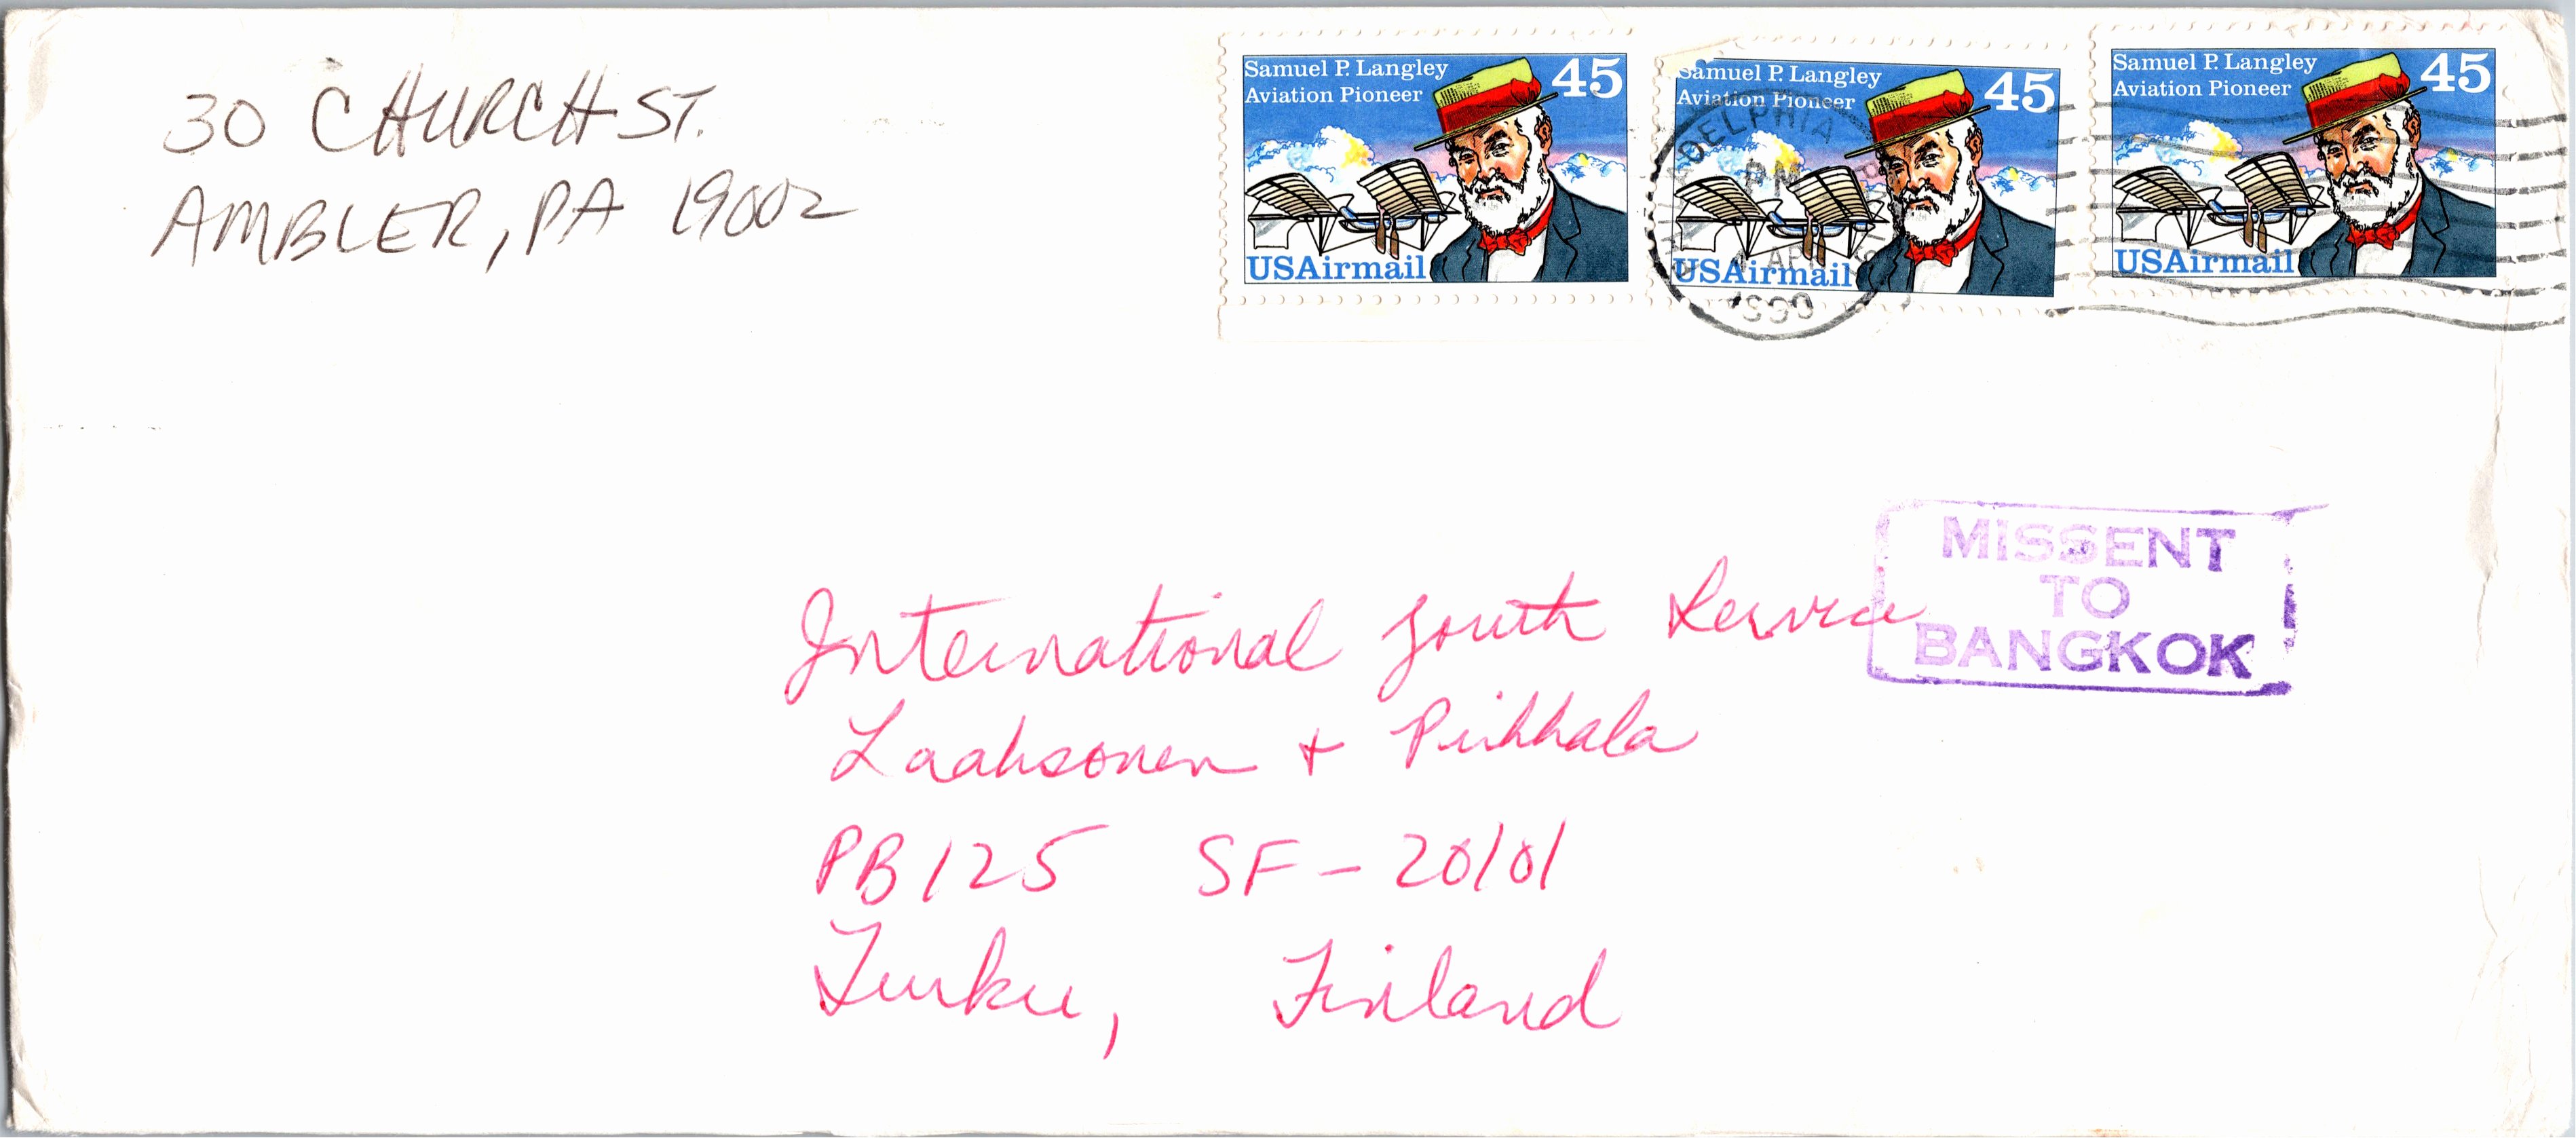 30 CHURCH ST.
AMBLER, PA 19002
Samuel P. Langley
Aviation Pioneer
45
USAirmail
Samuel P. Langley
Aviation Pioneer
45
USAirmail
Samuel P. Langley
Aviation Pioneer
45
USAirmail
PHILADELPHIA
PM
APR
1990
MISSENT
TO
BANGKOK
International Youth Service
Laaksonen + Pirkkala
PB 125 SF - 20101
Turku, Finland